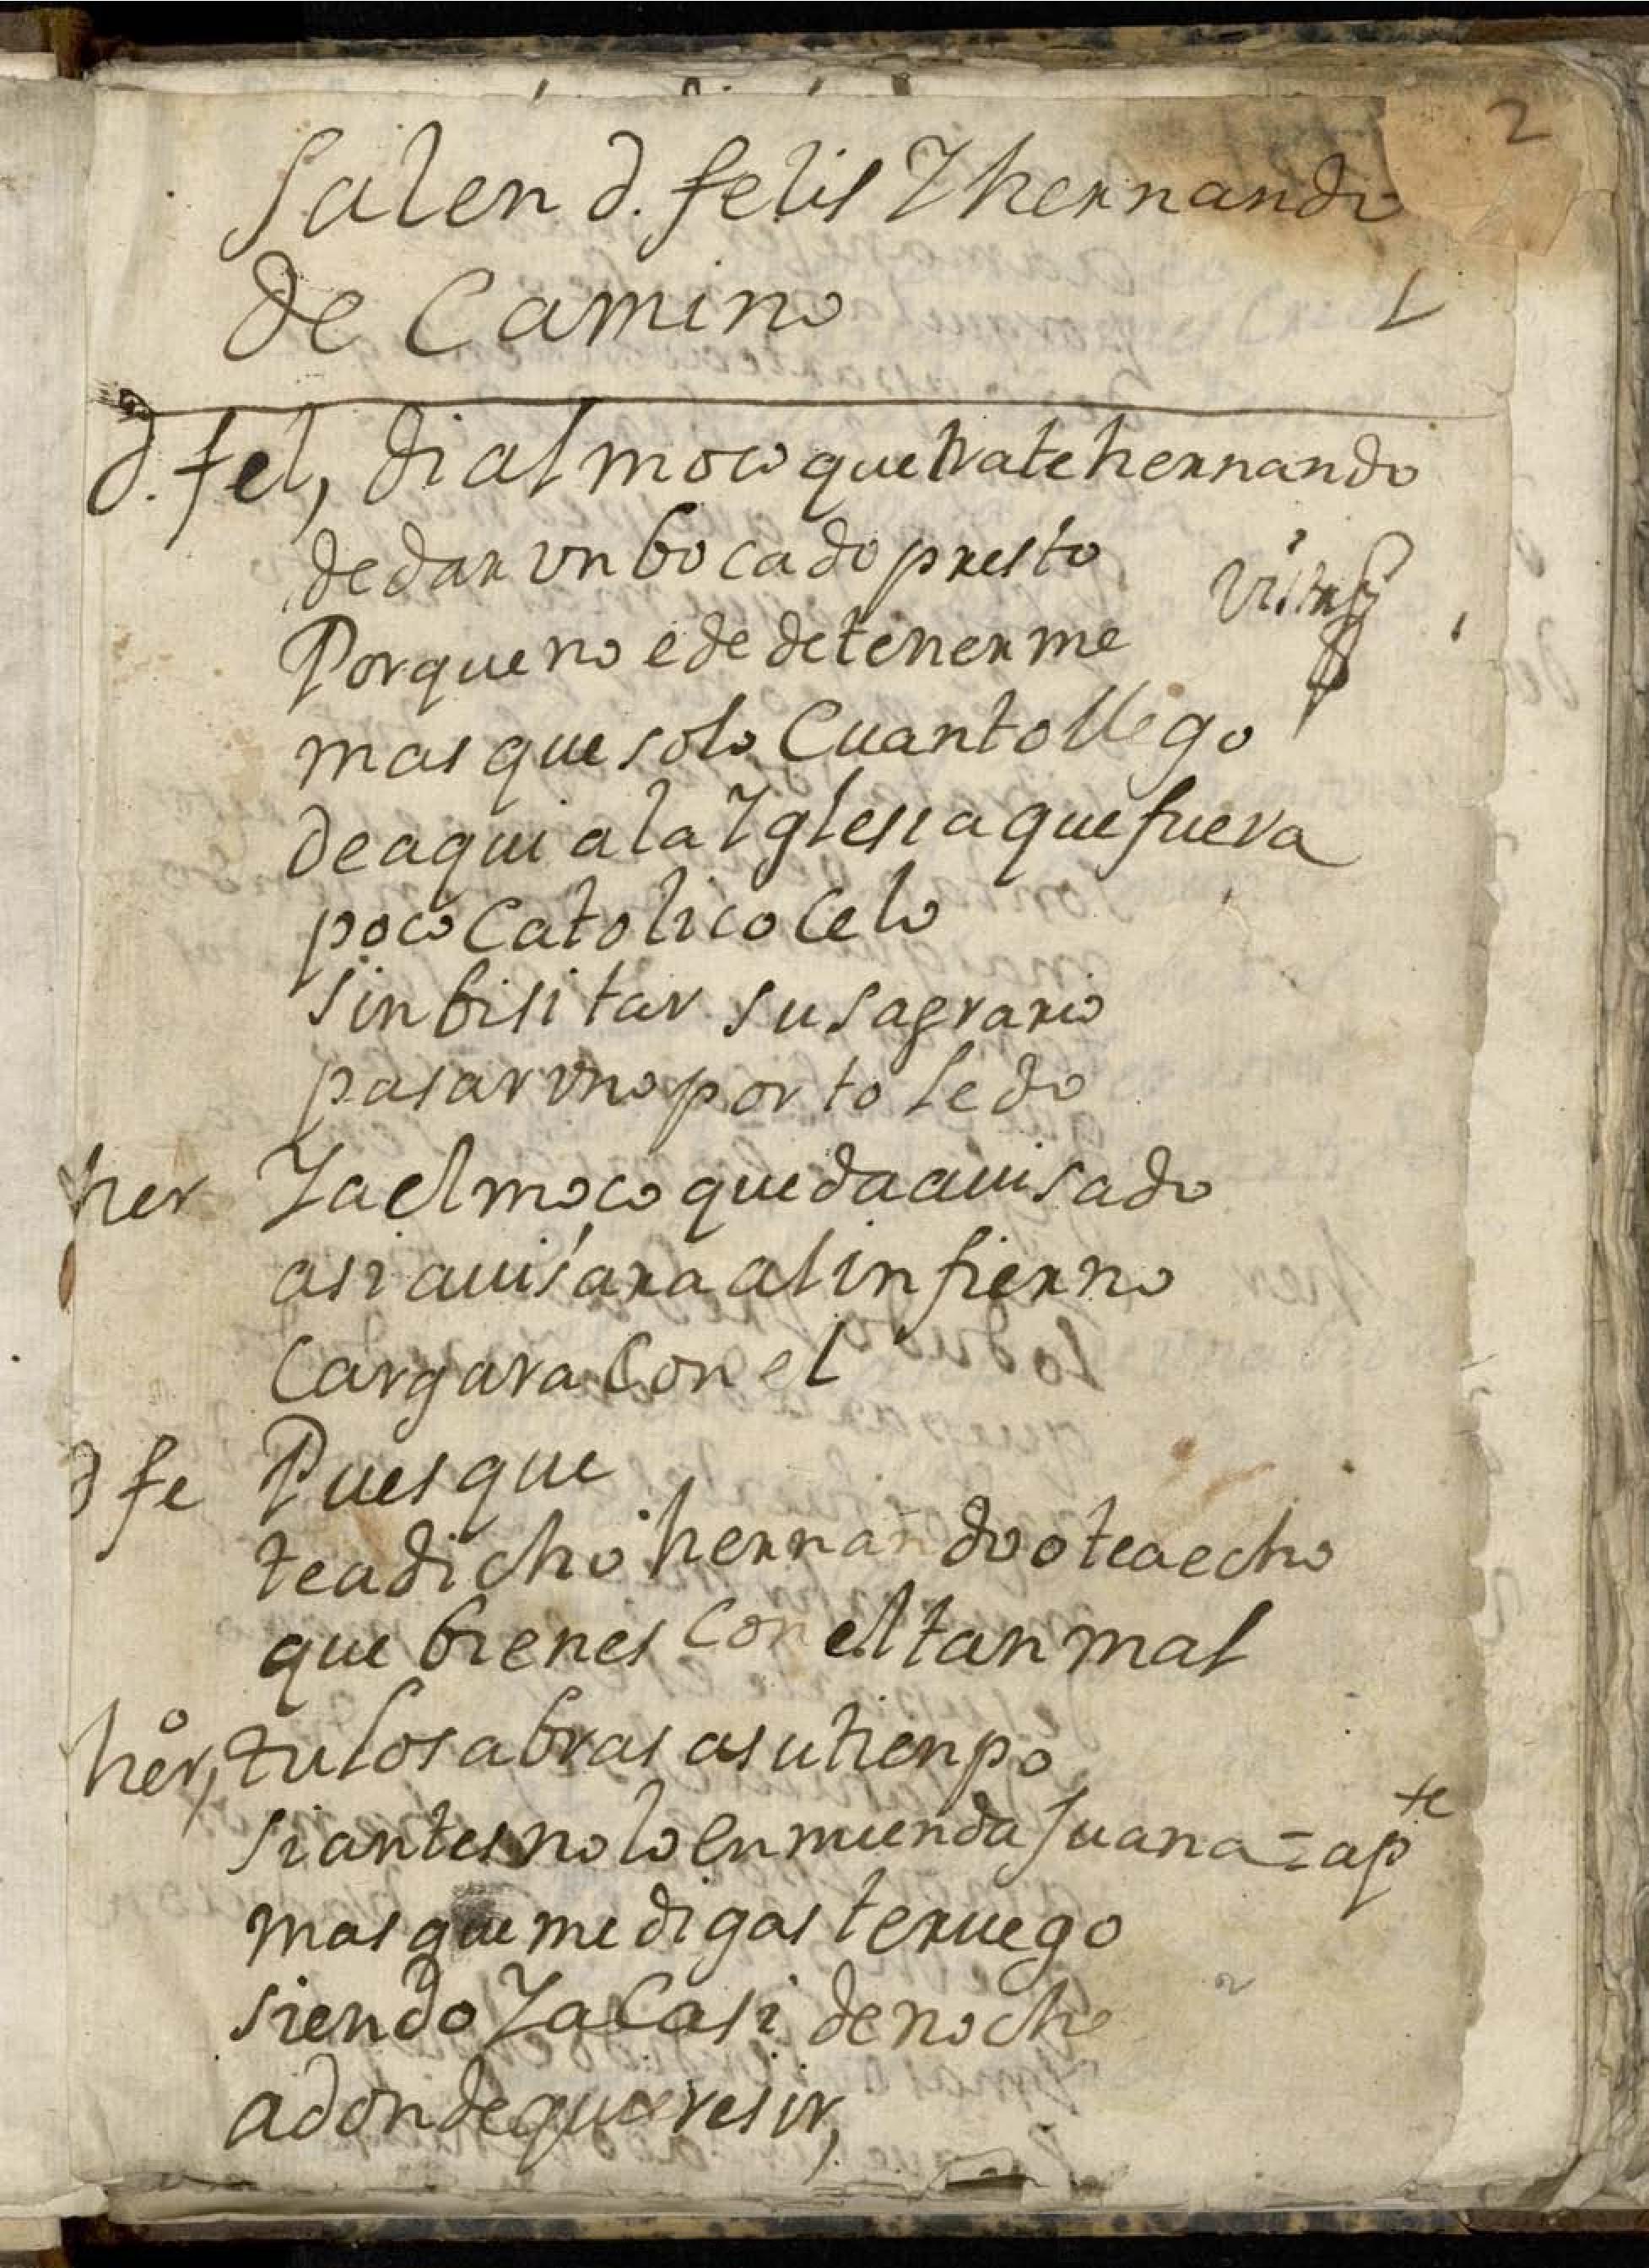 2
Salen d. felis Y hernando
de Camino
d. fel, di al moco que trate hernando
de dar vn bocado presto
Porque no e de detenerme
mas que solo Cuanto llego
de aqui a la Yglesia que fuera
poco Catolico Celo
sin bisitar su sagrario
pasar vno por toledo
her Ya el moco queda auisado
asi auisara al infierno
Cargara Con el
d fe Pues que
te a dicho hernando o te a echo
que bienes Con el tan mal
her, tu lo sabras a su tienpo
si antes no lo enmienda Juana = ap te
mas que me digas te ruego
siendo Ya Casi de noche
adonde quieres ir,